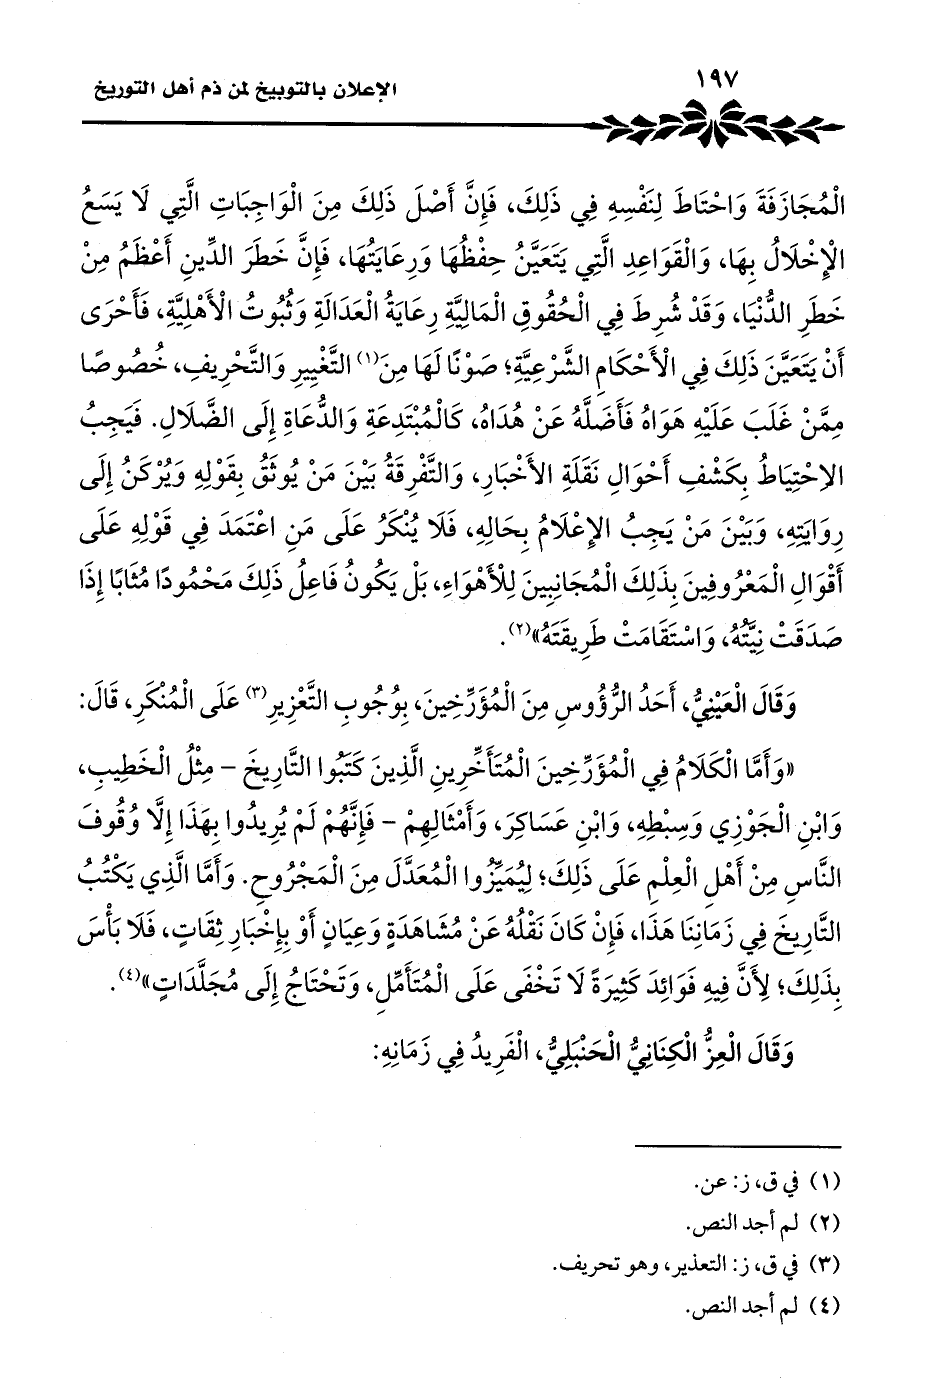 ١٩٧
الإعلان بالتوبيخ لمن ذم أهل التوريخ
الْمُجَازَفَةَ وَاحْتَاطَ لِنَفْسِهِ فِي ذَلِكَ، فَإِنَّ أَصْلَ ذَلِكَ مِنَ الْوَاجِبَاتِ الَّتِي لَا يَسَعُ
الْإِخْلَالُ بِهَا، وَالْقَوَاعِدِ الَّتِي يَتَعَيَّنُ حِفْظُهَا وَرِعَايَتُهَا، فَإِنَّ خَطَرَ الدِّينِ أَعْظَمُ مِنْ
خَطَرِ الدُّنْيَا، وَقَدْ شُرِطَ فِي الْحُقُوقِ الْمَالِيَّةِ رِعَايَةُ الْعَدَالَةِ وَثُبُوتُ الْأَهْلِيَّةِ، فَأَحْرَى
أَنْ يَتَعَيَّنَ ذَلِكَ فِي الْأَحْكَامِ الشَّرْعِيَّةِ؛ صَوْنًا لَهَا مِنَ(١) التَّغْيِيرِ وَالتَّحْرِيفِ، خُصُوصًا
مِمَّنْ غَلَبَ عَلَيْهِ هَوَاهُ فَأَضَلَّهُ عَنْ هُدَاهُ، كَالْمُبْتَدِعَةِ وَالدُّعَاةِ إِلَى الضَّلَالِ. فَيَجِبُ
الِاحْتِيَاطُ بِكَشْفِ أَحْوَالِ نَقَلَةِ الأَخْبَارِ، وَالتَّفْرِقَةُ بَيْنَ مَنْ يُوثَقُ بِقَوْلِهِ وَيُرْكَنُ إِلَى
رِوَايَتِهِ، وَبَيْنَ مَنْ يَجِبُ الإِعْلَامُ بِحَالِهِ، فَلَا يُنْكَرُ عَلَى مَنِ اعْتَمَدَ فِي قَوْلِهِ عَلَى
أَقْوَالِ الْمَعْرُوفِينَ بِذَلِكَ الْمُجَانِبِينَ لِلْأَهْوَاءِ، بَلْ يَكُونُ فَاعِلُ ذَلِكَ مَحْمُودًا مُثَابًا إِذَا
صَدَقَتْ نِيَّتُهُ، وَاسْتَقَامَتْ طَرِيقَتَهُ»(٢).
وَقَالَ الْعَيْنِيُّ، أَحَدُ الرُّؤُوسِ مِنَ الْمُؤَرِّخِينَ، بِوُجُوبِ التَّعْزِيرِ(٣) عَلَى الْمُنْكَرِ، قَالَ:
«وَأَمَّا الْكَلَامُ فِي الْمُؤَرِّخِينَ الْمُتَأَخِّرِينِ الَّذِينَ كَتَبُوا التَّارِيخَ - مِثْلُ الْخَطِيبِ،
وَابْنِ الْجَوْزِي وَسِبْطِهِ، وَابْنِ عَسَاكِرَ، وَأَمْثَالِهِمْ - فَإِنَّهُمْ لَمْ يُرِيدُوا بِهَذَا إِلَّا وُقُوفَ
النَّاسِ مِنْ أَهْلِ الْعِلْمِ عَلَى ذَلِكَ؛ لِيُمَيِّزُوا الْمُعَدَّلَ مِنَ الْمَجْرُوحِ. وَأَمَّا الَّذِي يَكْتُبُ
التَّارِيخَ فِي زَمَانِنَا هَذَا، فَإِنْ كَانَ نَقْلُهُ عَنْ مُشَاهَدَةٍ وَعِيَانٍ أَوْ بِإِخْبَارِ ثِقَاتٍ، فَلَا بَأْسَ
بِذَلِكَ؛ لِأَنَّ فِيهِ فَوَائِدَ كَثِيرَةً لَا تَخْفَى عَلَى الْمُتَأَمِّلِ، وَتَحْتَاجُ إِلَى مُجَلَّدَاتٍ»(٤).
وَقَالَ الْعِزُّ الْكِنَانِيُّ الْحَنْبَلِيُّ، الْفَرِيدُ فِي زَمَانِهِ:
(١) في ق، ز: عن.
(٢) لم أجد النص.
(٣) في ق، ز: التعذير، وهو تحريف.
(٤) لم أجد النص.